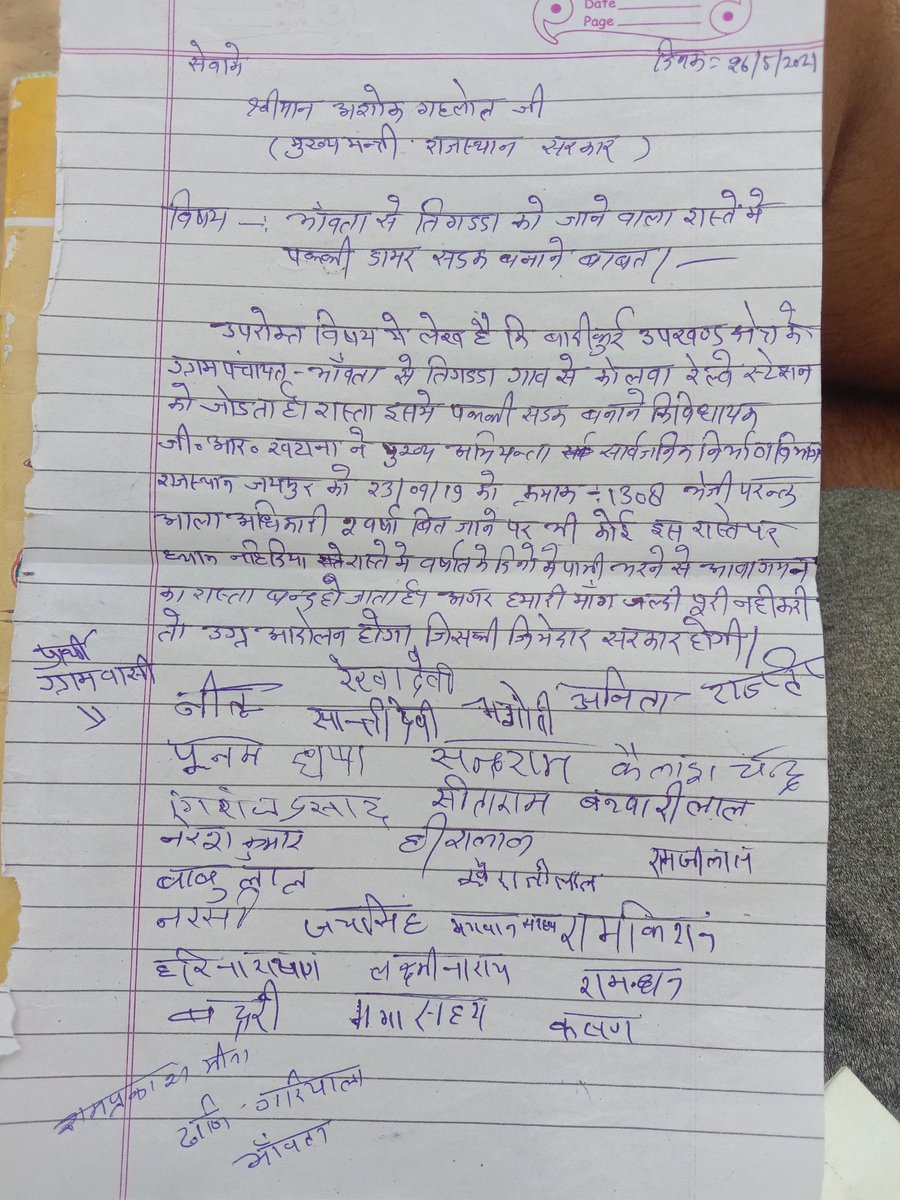 Date
Page
सेवामे
दिनाक = 26/5/2021
श्रीमान अशोक गहलोत जी
(मुख्यमन्त्री राजस्थान सरकार)
विषय —: भाँवता से तिगडडा को जाने वाला रास्ते मे
पक्की डामर सडक बनाने बाबत। —
उपरोक्त विषय मे लेख है कि बादीकुई उपखण्ड क्षेत्र के
ग्राम पंचायत - भाँवता से तिगडडा गाव से कोलवा रेल्वे स्टेशन
को जोडता है। रास्ता इसमे पक्की सडक बनाने कि विधायक
जी॰ आर॰ खटाना ने मुख्य अभियन्ता सार्वजनिक निर्माण विभाग
राजस्थान जयपुर को 23/09/19 को क्रमाक ÷ 1308 भेजी परन्तु
आला अधिकारी 2 वर्षा बित जाने पर भी कोई इस रास्ते पर
ध्यान नहि दिया रास्ते मे वर्षात के दिनो मे पानी भरने से आवागमन
का रास्ता बन्द हो जाता है। अगर हमारी माँग जल्दी पूरी नही करी
तो उग्र आदोलन होगा जिसकी जिमेदार सरकार होगी।
प्रार्थी
ग्रामवासी
रेखा देवी
सान्ती देवी अनिता
पूनम कैलाश चन्द्र
प्रसाद सीताराम बनवारीलाल
नरेश कुमार हीरालाल रामजीलाल
बाबुलाल खैरातीलाल
नरसी जयसिंह भगवान सहाय रामकिशन
हरिनारायण लक्ष्मीनाराय रामधन
बद्री गगासहय कलण
रामप्रकाश मीना
ढाणि - गारियाला
भाँवता